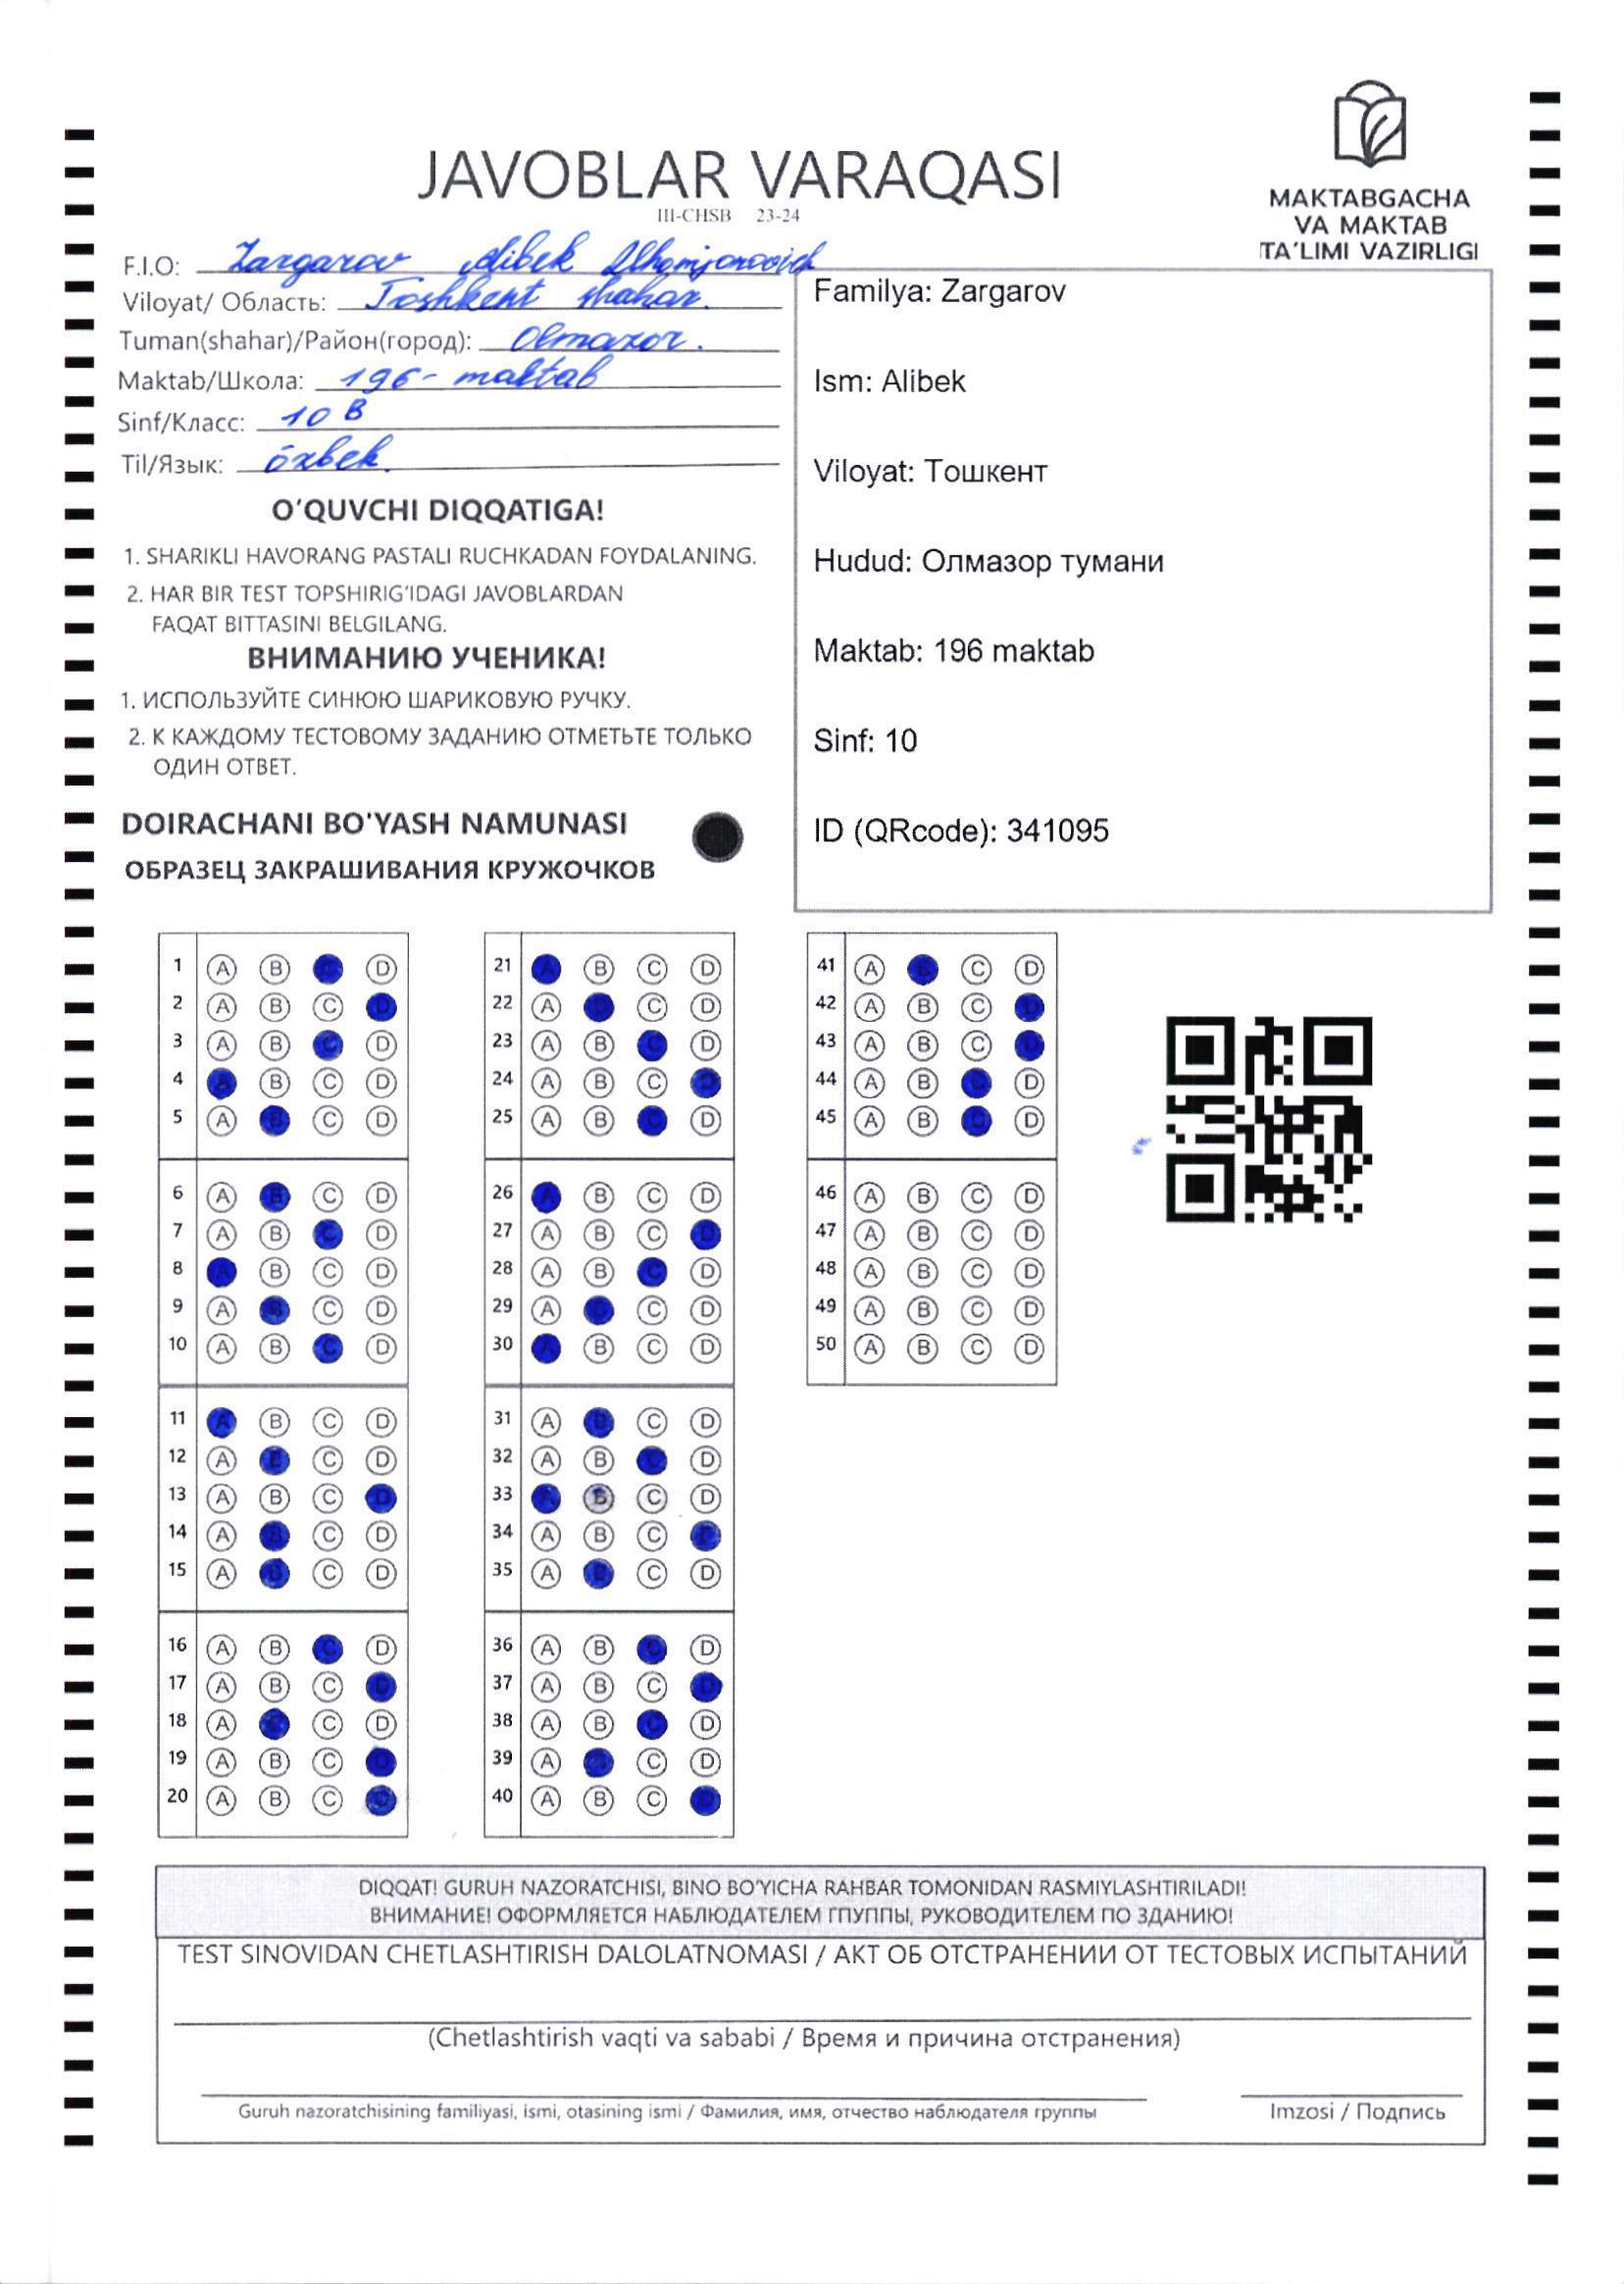 JAVOBLAR VARAQASI
III-CHSB 23-24
MAKTABGACHA
VA MAKTAB
TA'LIMI VAZIRLIGI
F.I.O: Zargarov Alibek Ilhomjonovich
Viloyat/ Область: Toshkent shahar.
Tuman(shahar)/Район(город): Olmazor.
Maktab/Школа: 196- maktab
Sinf/Класс: 10 B
Til/Язык: õzbek.
O'QUVCHI DIQQATIGA!
1. SHARIKLI HAVORANG PASTALI RUCHKADAN FOYDALANING.
2. HAR BIR TEST TOPSHIRIG'IDAGI JAVOBLARDAN
FAQAT BITTASINI BELGILANG.
ВНИМАНИЮ УЧЕНИКА!
1. ИСПОЛЬЗУЙТЕ СИНЮЮ ШАРИКОВУЮ РУЧКУ.
2. К КАЖДОМУ ТЕСТОВОМУ ЗАДАНИЮ ОТМЕТЬТЕ ТОЛЬКО
ОДИН ОТВЕТ.
DOIRACHANI BO'YASH NAMUNASI
ОБРАЗЕЦ ЗАКРАШИВАНИЯ КРУЖОЧКОВ
Familya: Zargarov
Ism: Alibek
Viloyat: Тошкент
Hudud: Олмазор тумани
Maktab: 196 maktab
Sinf: 10
ID (QRcode): 341095
1 A B C D
2 A B C D
3 A B C D
4 A B C D
5 A B C D
6 A B C D
7 A B C D
8 A B C D
9 A B C D
10 A B C D
11 A B C D
12 A B C D
13 A B C D
14 A B C D
15 A B C D
16 A B C D
17 A B C D
18 A B C D
19 A B C D
20 A B C D
21 A B C D
22 A B C D
23 A B C D
24 A B C D
25 A B C D
26 A B C D
27 A B C D
28 A B C D
29 A B C D
30 A B C D
31 A B C D
32 A B C D
33 A B C D
34 A B C D
35 A B C D
36 A B C D
37 A B C D
38 A B C D
39 A B C D
40 A B C D
41 A B C D
42 A B C D
43 A B C D
44 A B C D
45 A B C D
46 A B C D
47 A B C D
48 A B C D
49 A B C D
50 A B C D
DIQQAT! GURUH NAZORATCHISI, BINO BO'YICHA RAHBAR TOMONIDAN RASMIYLASHTIRILADI!
ВНИМАНИЕ! ОФОРМЛЯЕТСЯ НАБЛЮДАТЕЛЕМ ГПУППЫ, РУКОВОДИТЕЛЕМ ПО ЗДАНИЮ!
TEST SINOVIDAN CHETLASHTIRISH DALOLATNOMASI / АКТ ОБ ОТСТРАНЕНИИ ОТ ТЕСТОВЫХ ИСПЫТАНИЙ
(Chetlashtirish vaqti va sababi / Время и причина отстранения)
Guruh nazoratchisining familiyasi, ismi, otasining ismi / Фамилия, имя, отчество наблюдателя группы
Imzosi / Подпись